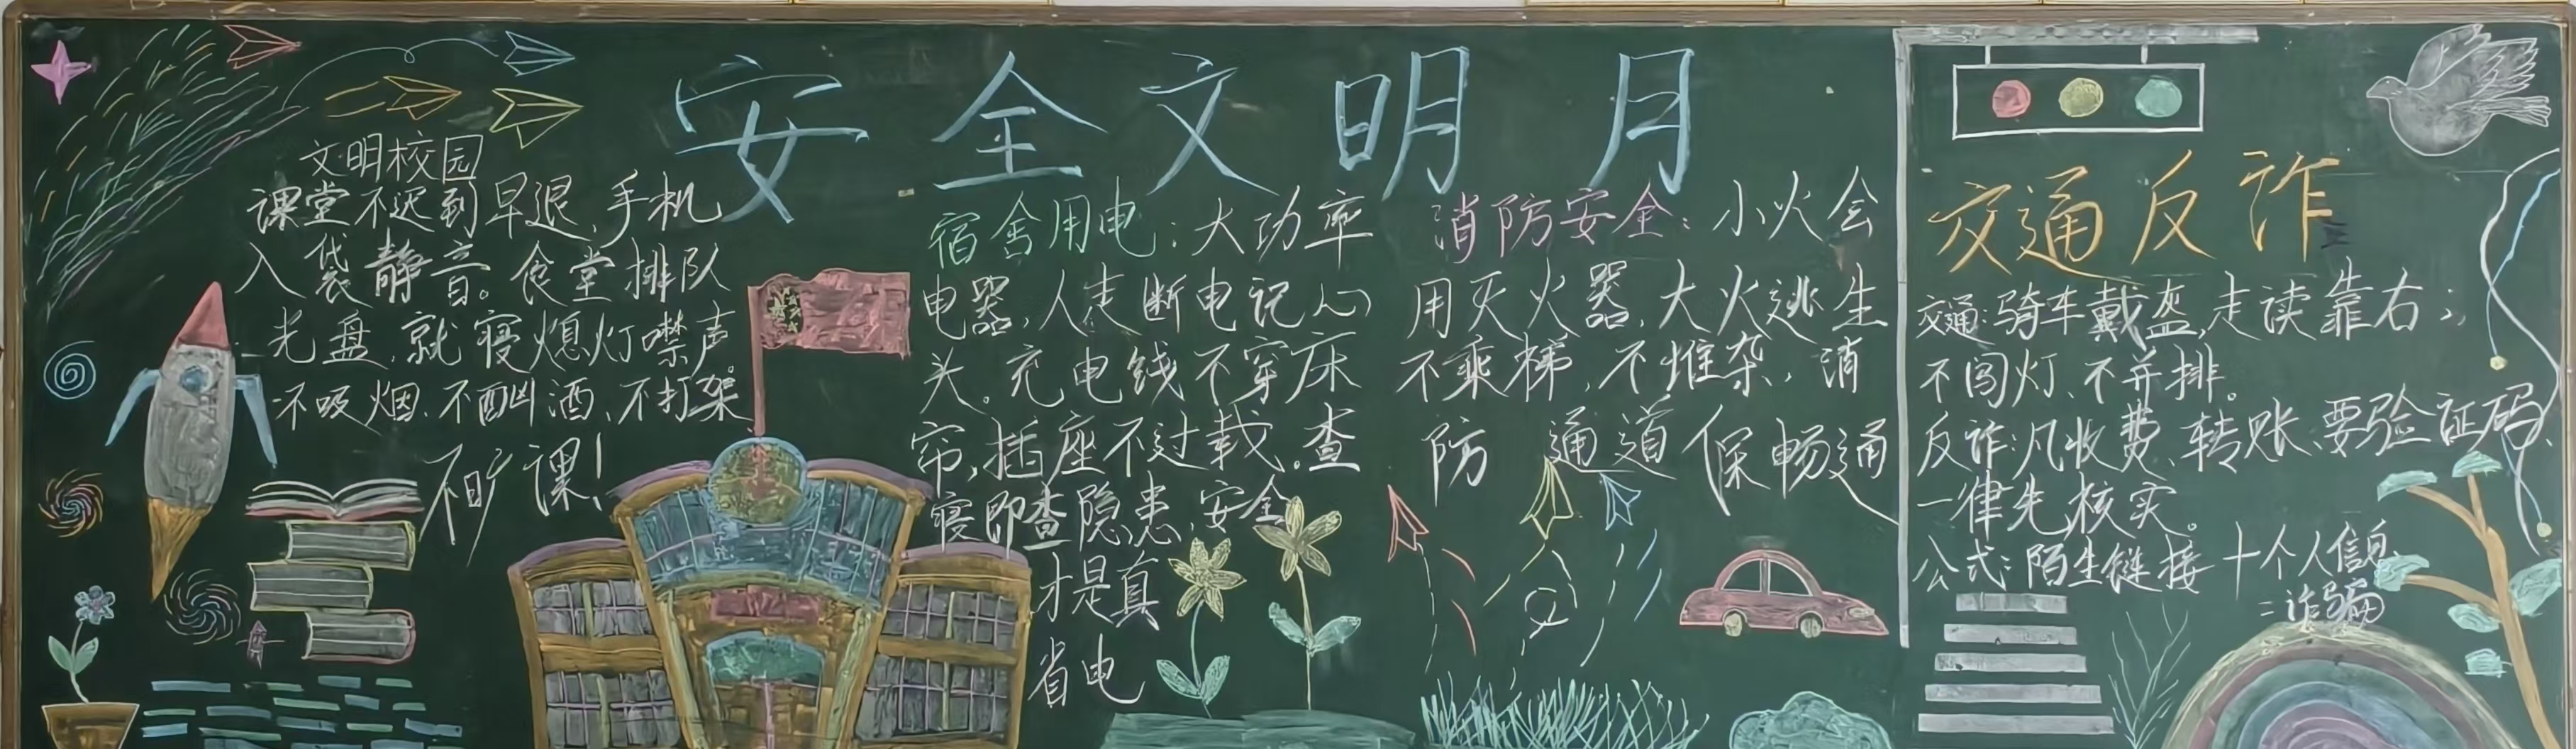 安全文明月
文明校园
课堂不迟到早退、手机
入袋静音。食堂排队
光盘,就寝熄灯噤声
不吸烟、不酗酒、不打架
不旷课!
宿舍用电:大功率
电器,人走断电记心
头。充电线不穿床
帘,插座不过载。查
寝即查隐患,安全
才是真
省电
消防安全:小火会
用灭火器,大火逃生
不乘梯,不堆杂,消
防通道保畅通
交通反诈
交通:骑车戴盔,走读靠右;
不闯灯、不并排。
反诈:凡收费、转账、要验证码、
一律先核实。
公式:陌生链接+个人信息
=诈骗